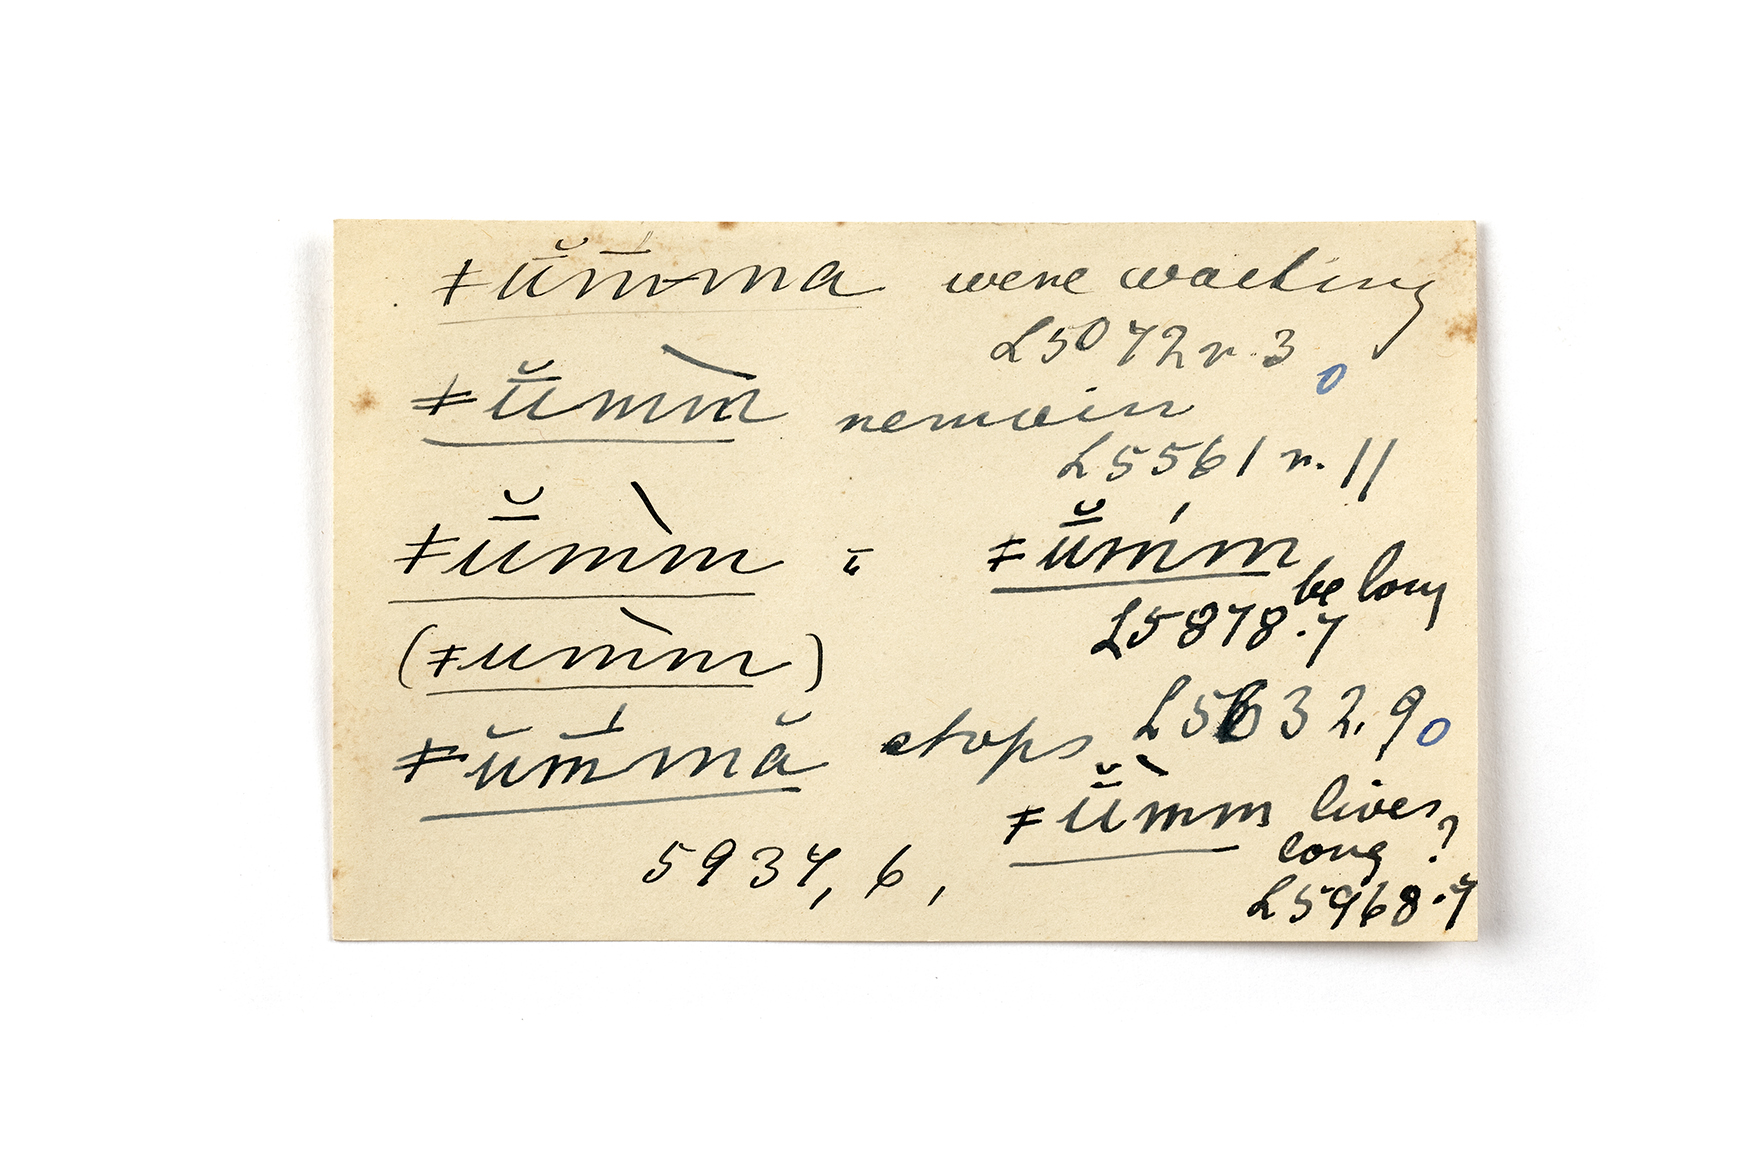 ǂŭ̄m̄́-ma were waiting
L5072r.3
ǂŭ̄mm̀ remain o
L5561r.11
ǂŭ̄m̀m = ǂŭ̄ḿm be long
L5878.7
(ǂum̀m)
ǂŭm̄́mă stops L5632.9 o
ǂŭ̄m̀m lives
long ?
5937, 6,
L5968.7